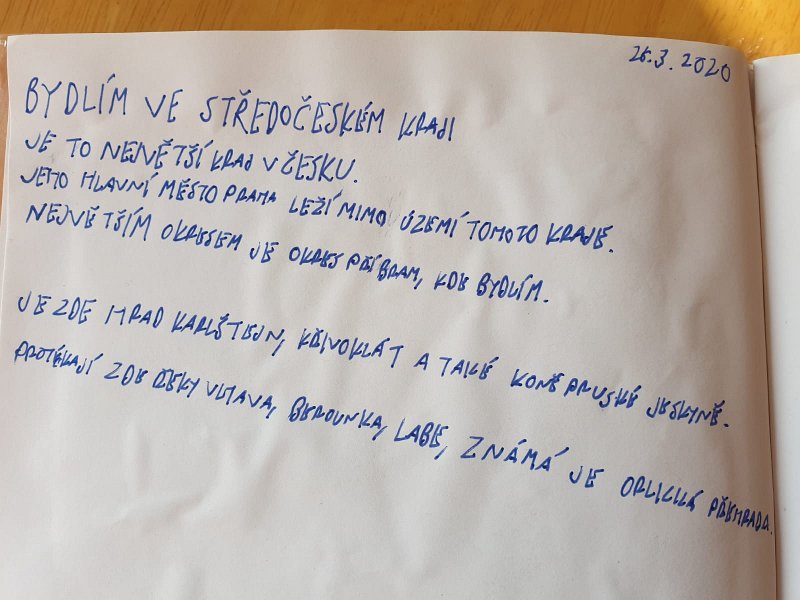 25.3.2020
BYDLÍM VE STŘEDOČESKÉM KRAJI
JE TO NEJVĚTŠÍ KRAJ V ČESKU.
JEHO HLAVNÍ MĚSTO PRAHA LEŽÍ MIMO ÚZEMÍ TOHOTO KRAJE.
NEJVĚTŠÍM OKRESEM JE OKRES PŘÍBRAM, KDE BYDLÍM.
JE ZDE HRAD KARLŠTEJN, KŘIVOKLÁT A TAKÉ KONĚPRUSKÉ JESKYNĚ.
PROTÉKAJÍ ZDE ŘEKY VLTAVA, BEROUNKA, LABE, ZNÁMÁ JE ORLICKÁ PŘEHRADA.